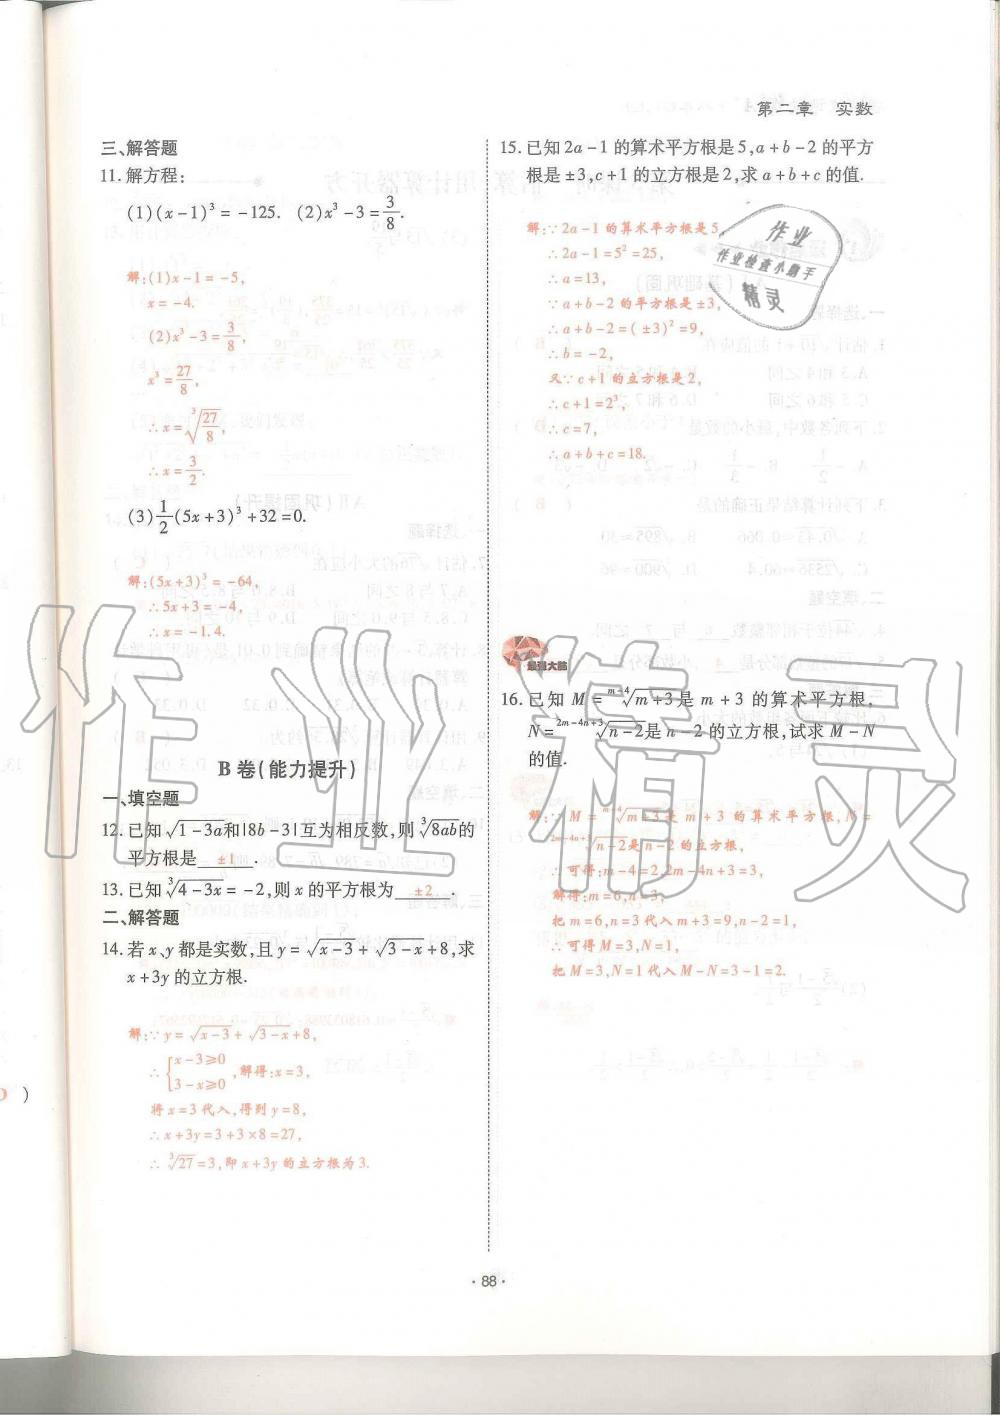 第二章 实数
三、解答题
11.解方程:
(1)(x-1)³=-125. (2)x³-3=3/8.
解:(1)x-1=-5,
x=-4.
(2)x³-3=3/8,
x³=27/8,
∴x=∛(27/8),
∴x=3/2.
(3)1/2(5x+3)³+32=0.
解:(5x+3)³=-64,
∴5x+3=-4,
∴x=-1.4.
B卷(能力提升)
一、填空题
12.已知√(1-3a)和|8b-3|互为相反数,则∛(8ab)的
平方根是 ±1 .
13.已知∛(4-3x)=-2,则x的平方根为 ±2 .
二、解答题
14.若x、y都是实数,且y=√(x-3)+√(3-x)+8,求
x+3y的立方根.
解:∵y=√(x-3)+√(3-x)+8,
∴{x-3≥0
3-x≥0,解得:x=3,
将x=3代入,得到y=8,
∴x+3y=3+3×8=27,
∴∛27=3,即x+3y的立方根为3.
15.已知2a-1的算术平方根是5,a+b-2的平方
根是±3,c+1的立方根是2,求a+b+c的值.
解:∵2a-1的算术平方根是5,
∴2a-1=5²=25,
∴a=13,
∵a+b-2的平方根是±3,
∴a+b-2=(±3)²=9,
∴b=-2,
又∵c+1的立方根是2,
∴c+1=2³,
∴c=7,
∴a+b+c=18.
最强大脑
16.已知M=ᵐ⁻⁴√(m+3)是m+3的算术平方根,
N=²ᵐ⁻⁴ⁿ⁺³√(n-2)是n-2的立方根,试求M-N
的值.
解:∵M=ᵐ⁻⁴√(m+3)是m+3的算术平方根,N=
²ᵐ⁻⁴ⁿ⁺³√(n-2)是n-2的立方根,
∴可得:m-4=2,2m-4n+3=3,
解得:m=6,n=3,
把m=6,n=3代入m+3=9,n-2=1,
∴可得M=3,N=1,
把M=3,N=1代入M-N=3-1=2.
·88·
作业
作业检查小助手
精灵
作业精灵